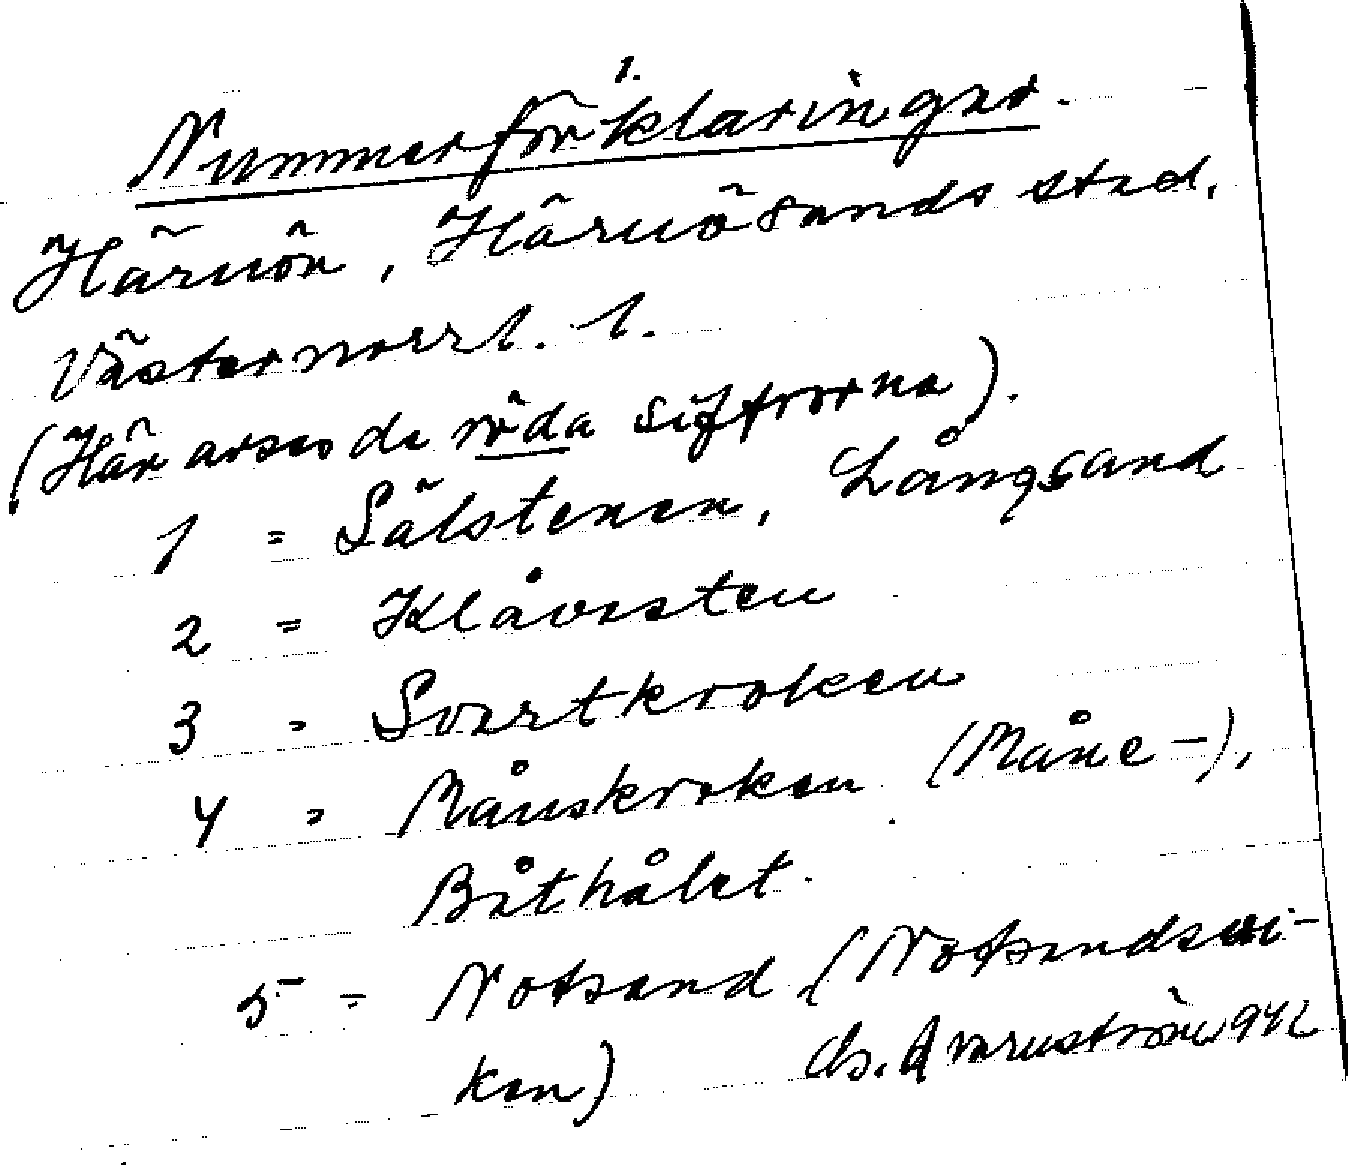 1.
Nummerförklaringar.
Härnön, Härnösands stad,
Västernorrl. l.
(Här avses de röda siffrorna).
1 = Sälstenen, Långsand
2 = Klåvsten
3 = Svartkroken
4 = Månskroken (Måne-),
Båthålet
5 = Notsand (Notsandsvi-
ken) 942